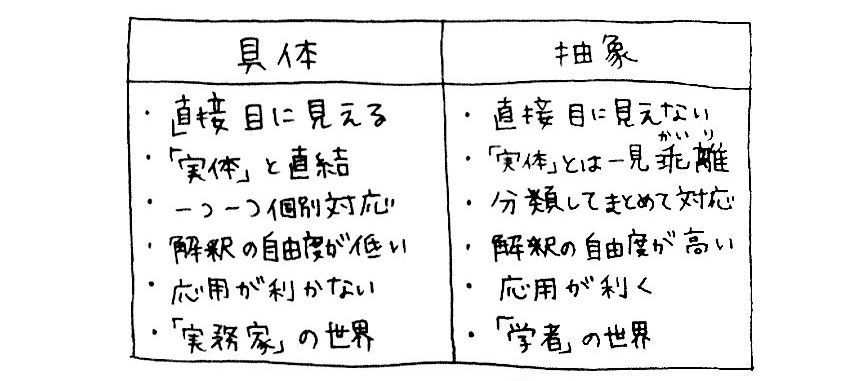 具体
抽象
・直接目に見える
・直接目に見えない
・「実体」と直結
・「実体」とは一見乖離
かいり
・一つ一つ個別対応
・分類してまとめて対応
・解釈の自由度が低い
・解釈の自由度が高い
・応用が利かない
・応用が利く
・「実務家」の世界
・「学者」の世界